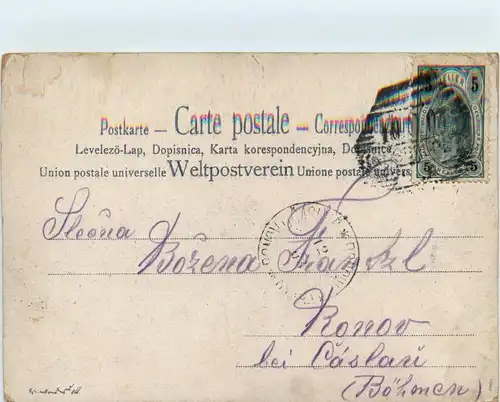 Postkarte — Carte postale — Correspondenz
Levelezö-Lap, Dopisnica, Karta korespondencyjna, Dopisnice,
Union postale universelle Weltpostverein Unione postale univers.
5 5
Slečna
Božena
Ronov
bei Cáslau
(Böhmen)